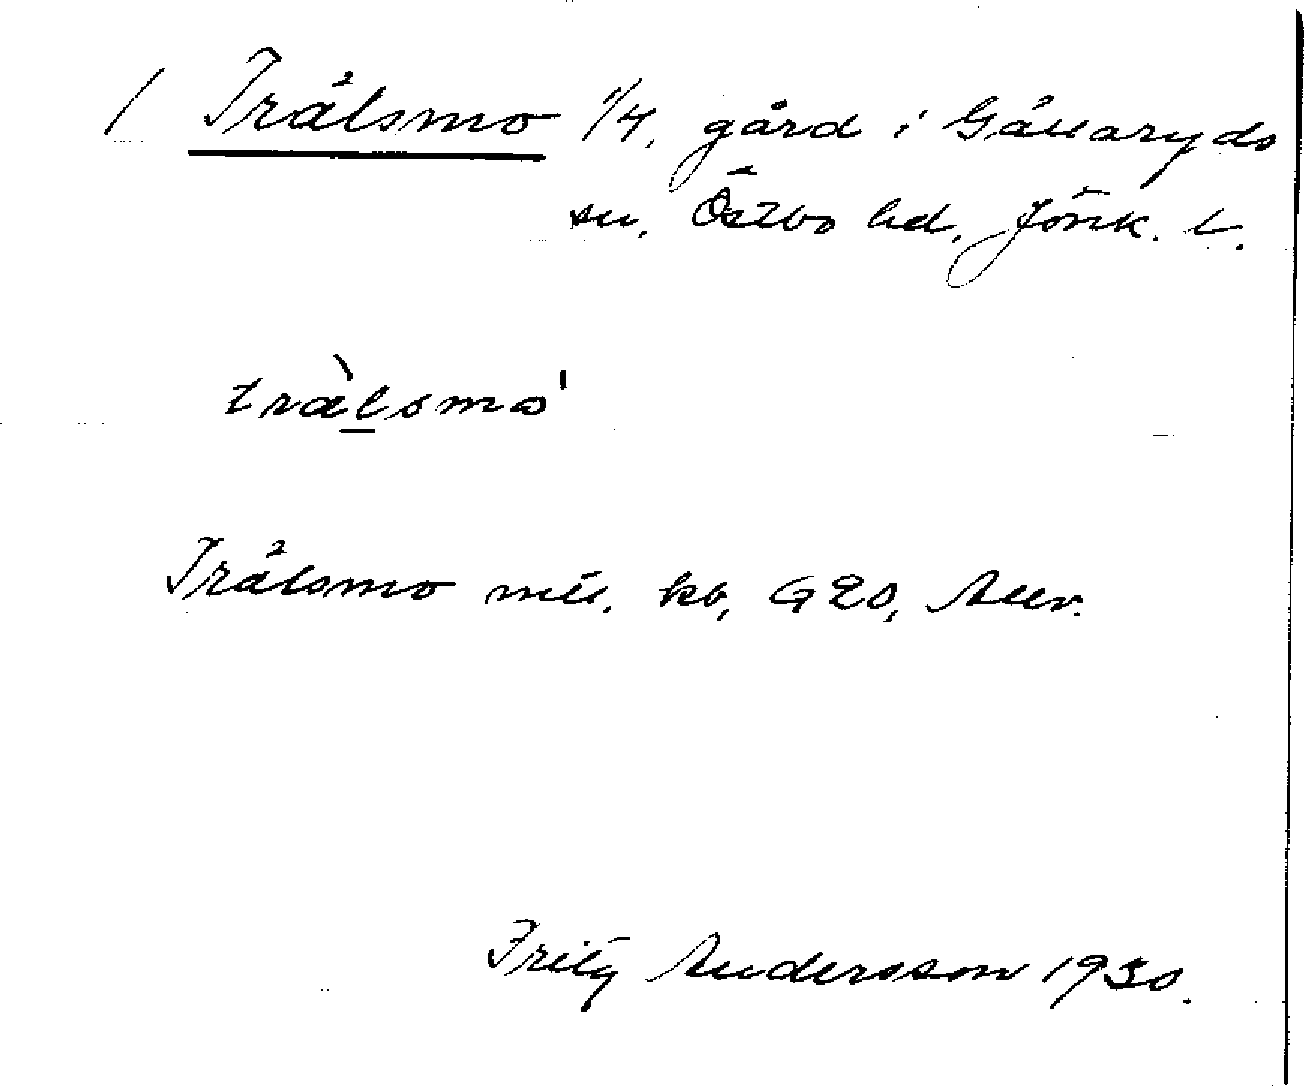 / Trålsmo 1/4, gård i Gållaryds
sn, Östbo hd, Jönk. l.
tràlsmo'
Trålsmo mtl. kb, GEO,
Fritz Andersson 1930.